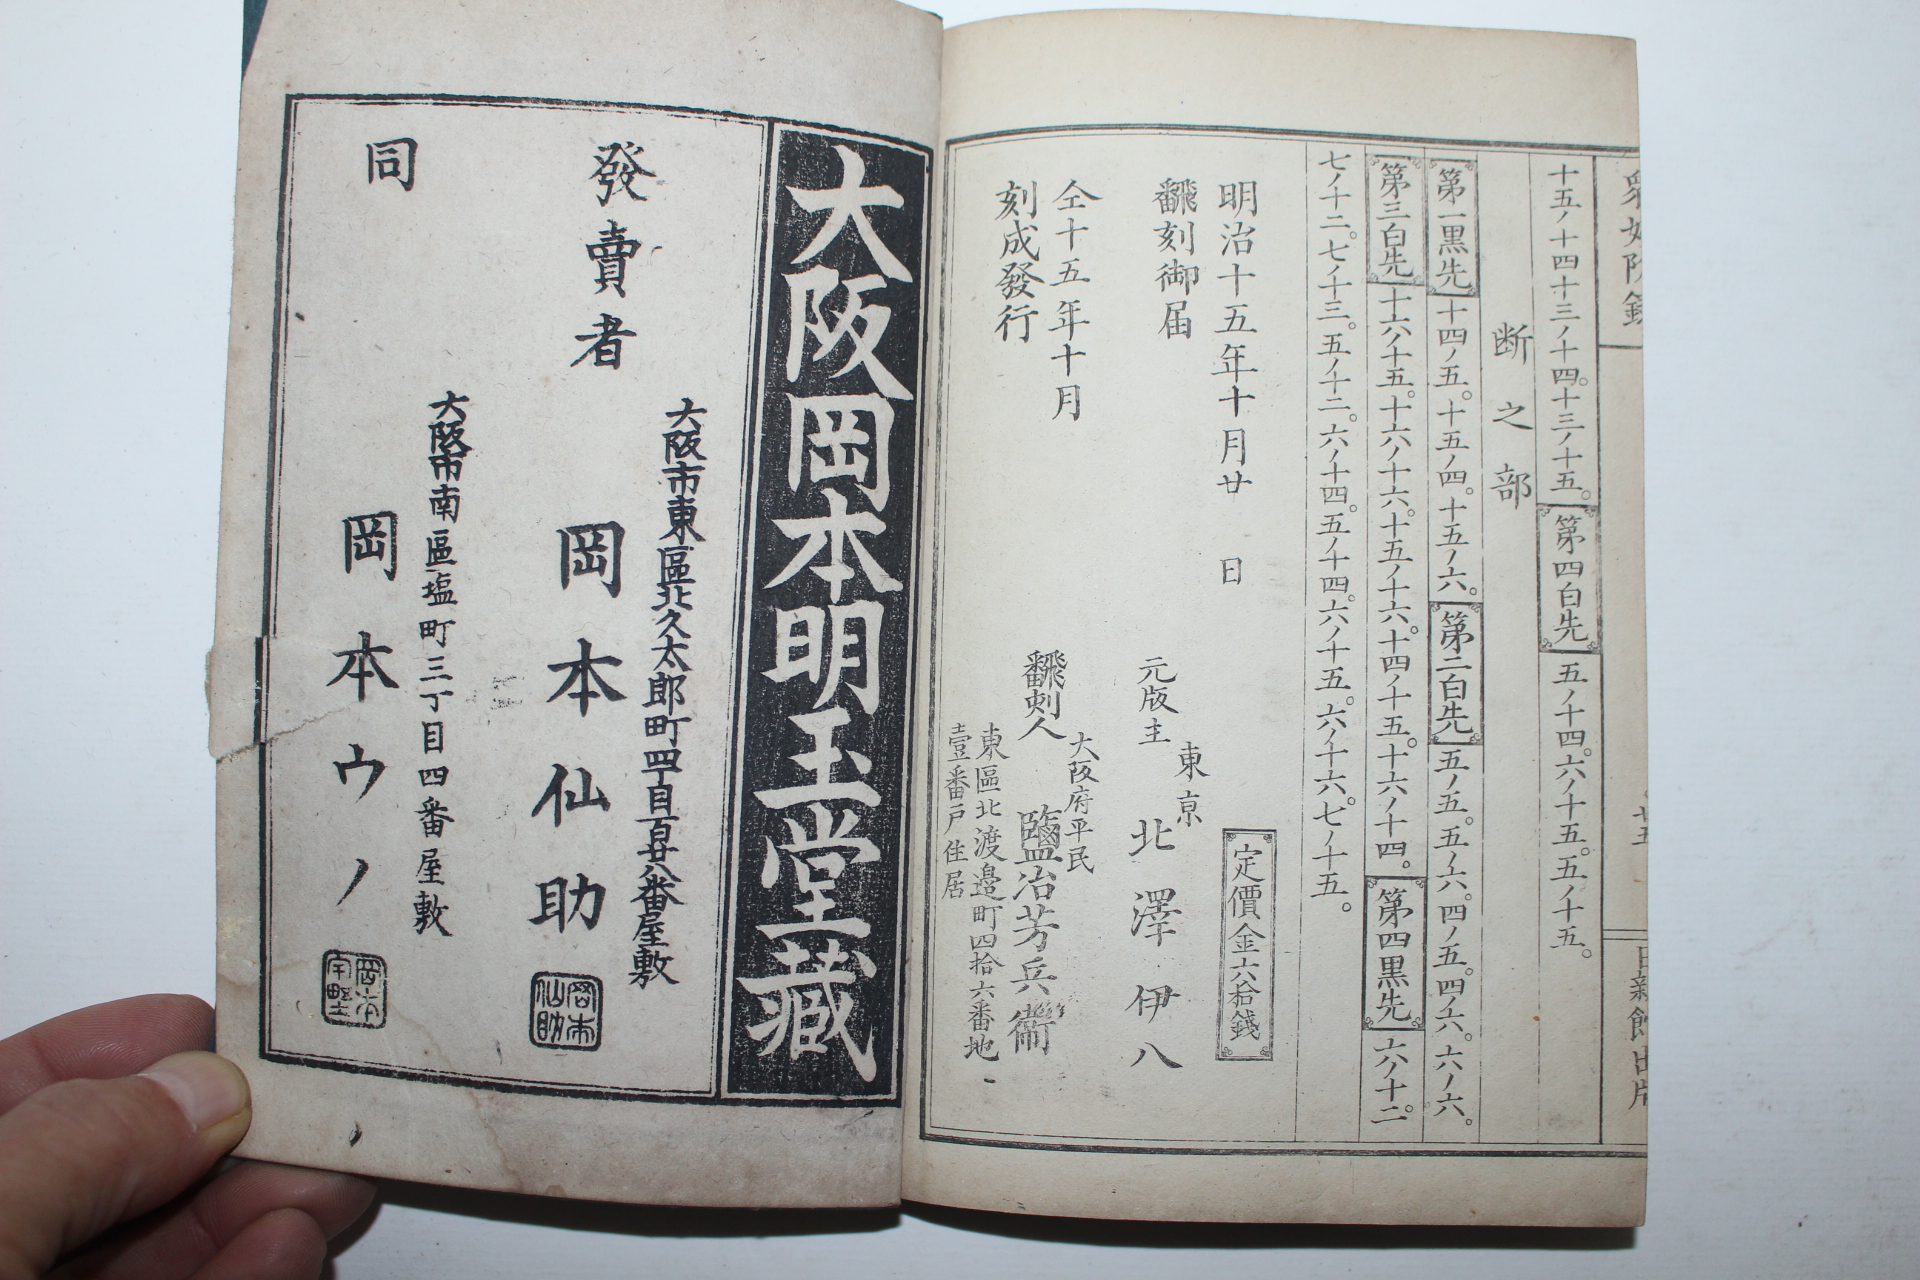 十五ノ十四十三ノ十四。十三ノ十五。第四白先五ノ十四。六ノ十五。五ノ十五。
断之部
第一黒先十四ノ五。十五ノ四。十五ノ六。第二白先五ノ五。五ノ六。四ノ五。四ノ六。六ノ六。
第三白先十六ノ十五。十六ノ十六。十五ノ十六。十四ノ十五。十六ノ十四。第四黒先六ノ十二。
七ノ十二。七ノ十三。五ノ十二。六ノ十四。五ノ十四。六ノ十五。六ノ十六。七ノ十五。
定價金六拾錢
明治十五年十月廿日
飜刻御届
仝十五年十月
刻成發行
東京
元版主 北澤伊八
大阪府平民
飜刻人 鹽冶芳兵衞
東區北渡邉町四拾六番地
壹番戸住居
大阪岡本明玉堂藏
大阪市東區北久太郎町四丁目百廿八番屋敷
發賣者 岡本仙助
岡本仙助
大阪市南區塩町三丁目四番屋敷
同 岡本ウノ